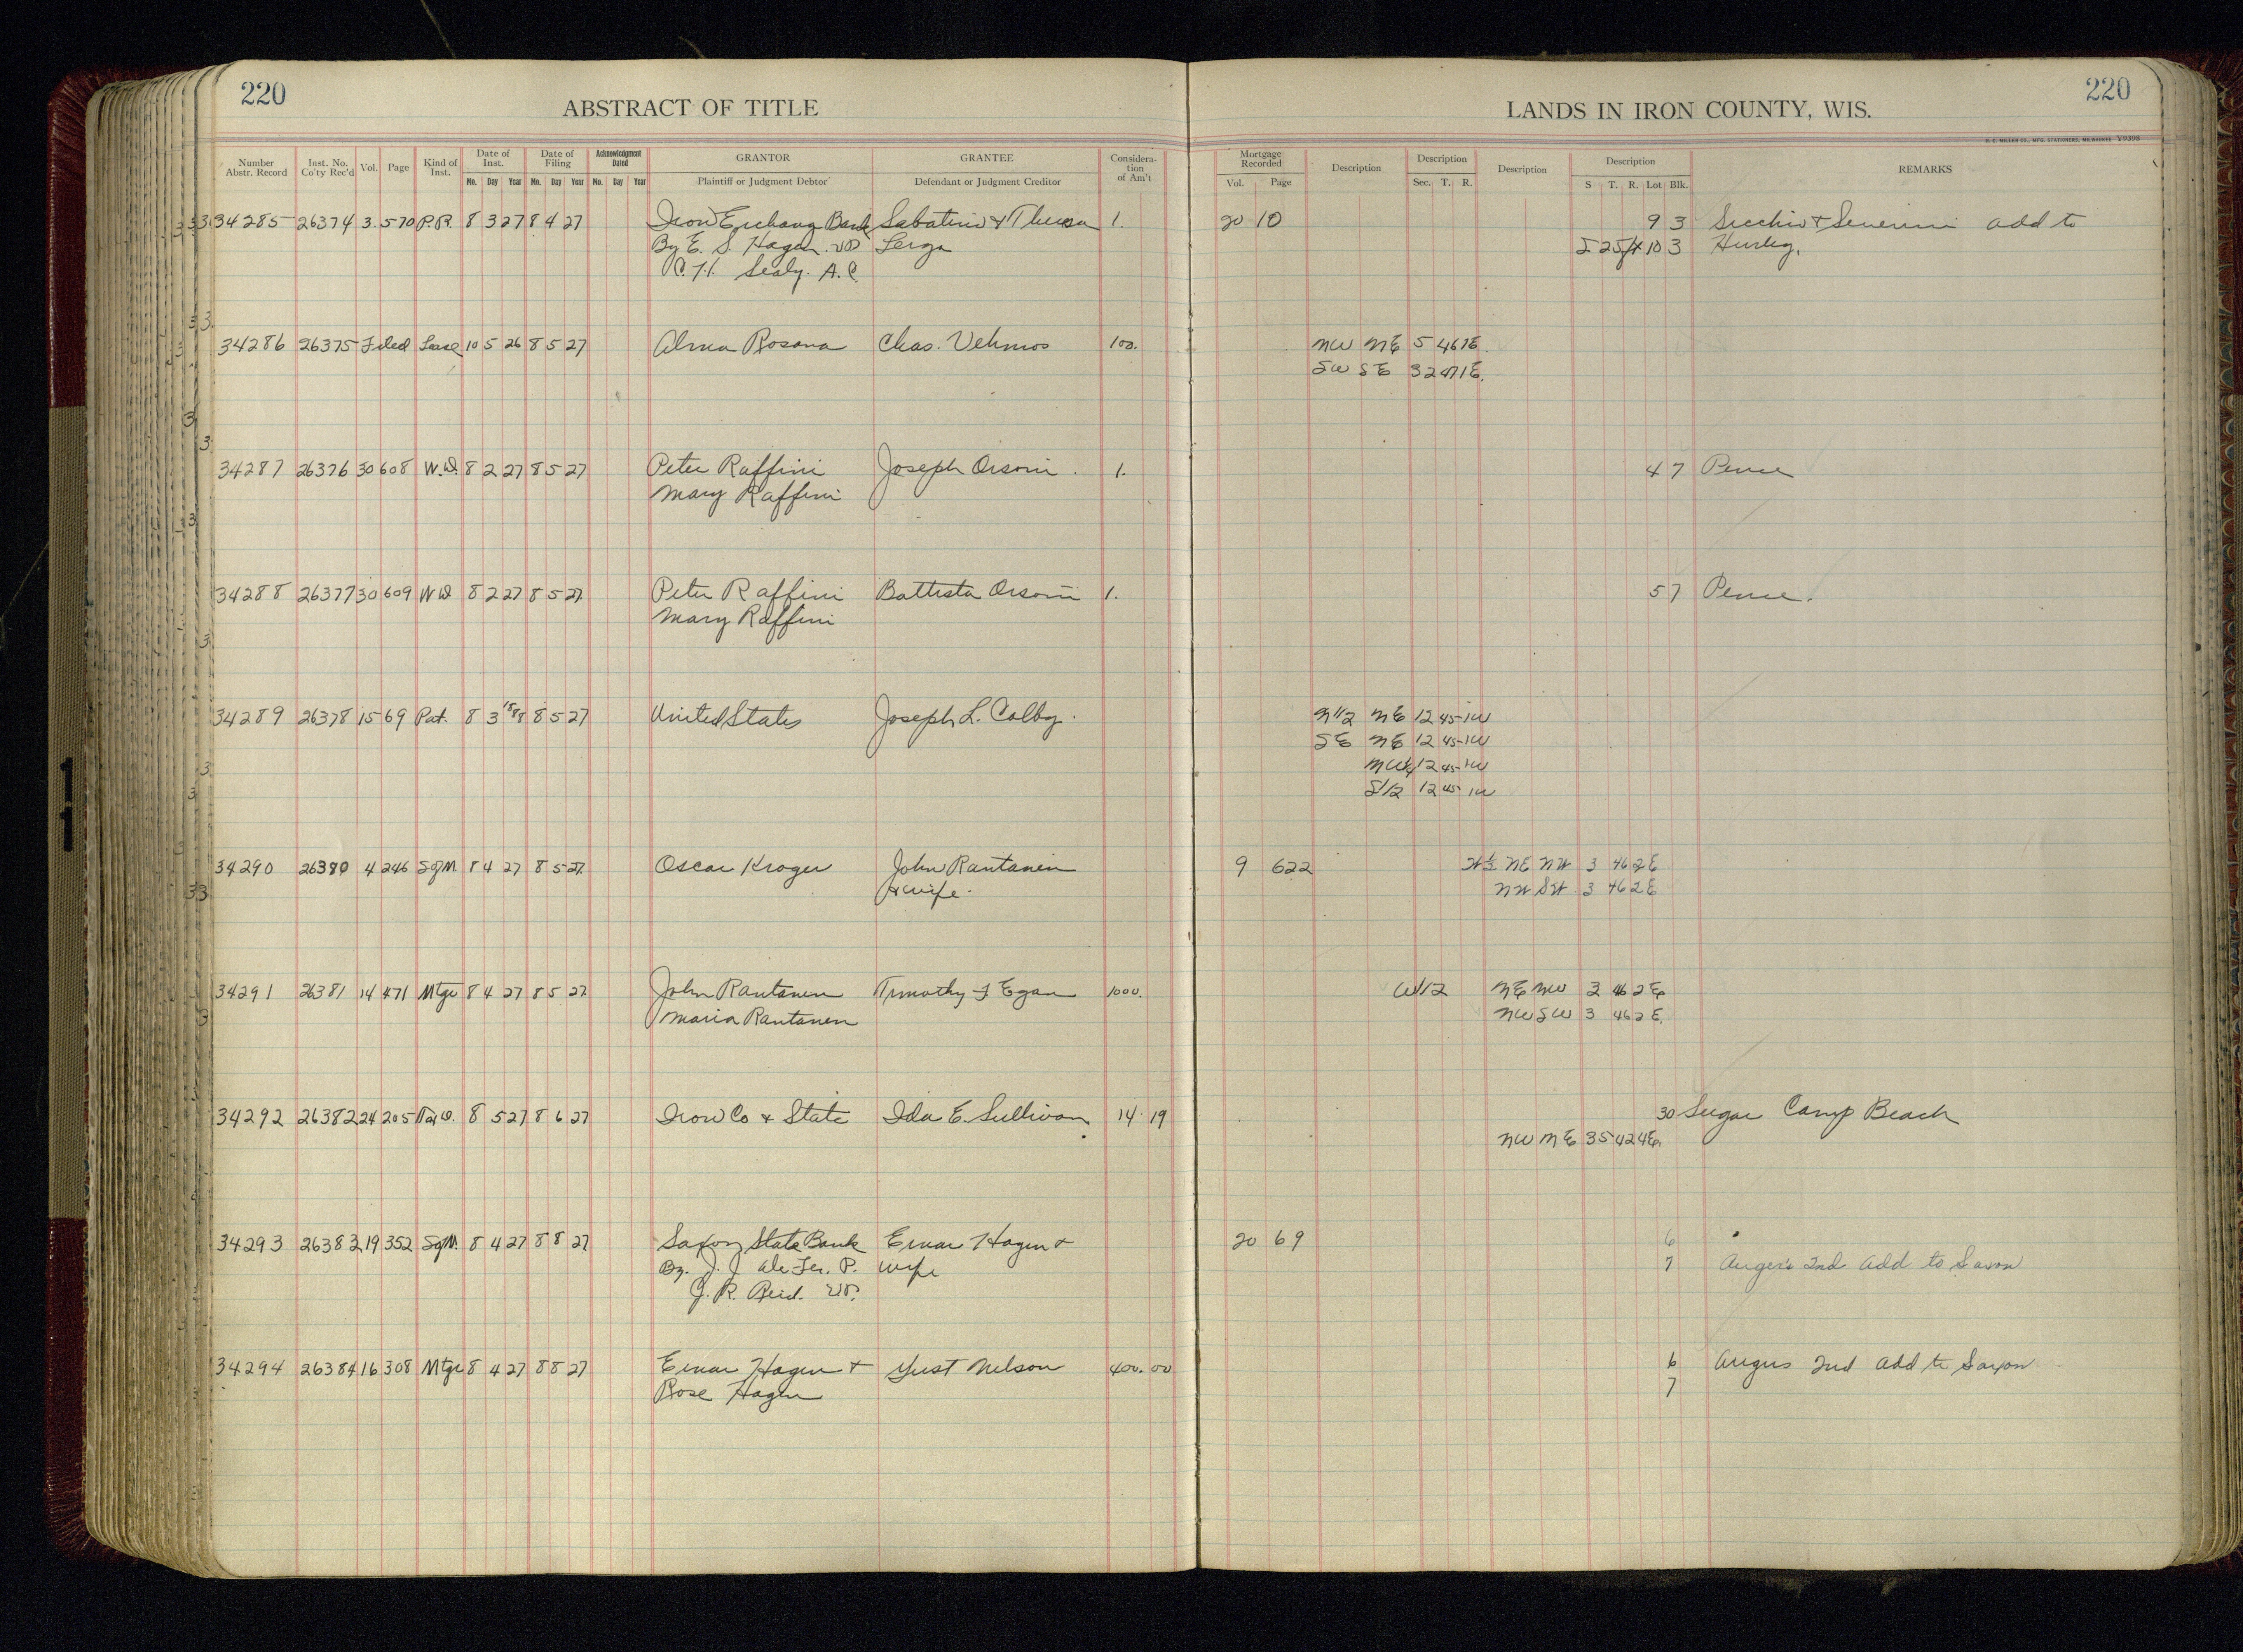 220
ABSTRACT OF TITLE
LANDS IN IRON COUNTY, WIS.
220
H. C. MILLER CO., MFG. STATIONERS, MILWAUKEE V9398
Number Abstr. Record Inst. No. Co'ty Rec'd Vol. Page Kind of Inst. Date of Inst. Mo. Day Year Date of Filing Mo. Day Year Acknowledgment Dated Mo. Day Year GRANTOR Plaintiff or Judgment Debtor GRANTEE Defendant or Judgment Creditor Consideration of Am't Mortgage Recorded Vol. Page Description Description Sec. T. R. Description Description S T. R. Lot Blk. REMARKS
34285 26374 3 570 P.R. 8 3 27 8 4 27 Iron Exchang Bank Sabatino & Theresa 1. 20 10 9 3 Secchio & Severini add to
By E. S. Hagen VP Lerza S 25 10 3 Hurley.
C.H. Sealy. A.C.
34286 26375 Filed Lease 10 5 26 8 5 27 Alma Rosana Chas. Vehmos 100. NW NE 5 46 1E.
SW SE 32 47 1E.
34287 26376 30 608 W.D. 8 2 27 8 5 27 Peter Raffini Joseph Orsoni. 1. 4 7 Pence
Mary Raffini
34288 26377 30 609 WD 8 2 27 8 5 27. Peter Raffini Battista Orsoni 1. 5 7 Pence.
Mary Raffini
34289 26378 15 69 Pat. 8 3 8 5 27 United States Joseph L. Colby. N1/2 NE 12 45 1W
SE NE 12 45 1W
NW1/4 12 45 1W
S1/2 12 45 1W
34290 26380 4 246 SofM. 8 4 27 8 5 27. Oscar Kroger John Rantanen 9 622 W½ NE NW 3 46 2E
& wife. NW SW 3 46 2E
34291 26381 14 471 Mtge 8 4 27 8 5 27. John Rantanen Timothy F Egan 1000. W1/2 NE NW 3 46 2E
Maria Rantanen NW SW 3 46 2E.
34292 26382 24 205 Tax D. 8 5 27 8 6 27 Iron Co & State Ida E. Sullivan 14.19 30 Sugar Camp Beach
NW NE 35 42 4E.
34293 26383 19 352 SofM. 8 4 27 8 8 27 Saxon State Bank Einar Hagen & 20 69 6
By. J. J. P. wife 7 Anger's 2nd Add to Saxon
J. R. Reid. VP.
34294 26384 16 308 Mtge 8 4 27 8 8 27 Einar Hagen & Just Nelson 400.00 6 Angus 2nd Add to Saxon
Rose Hagen 7